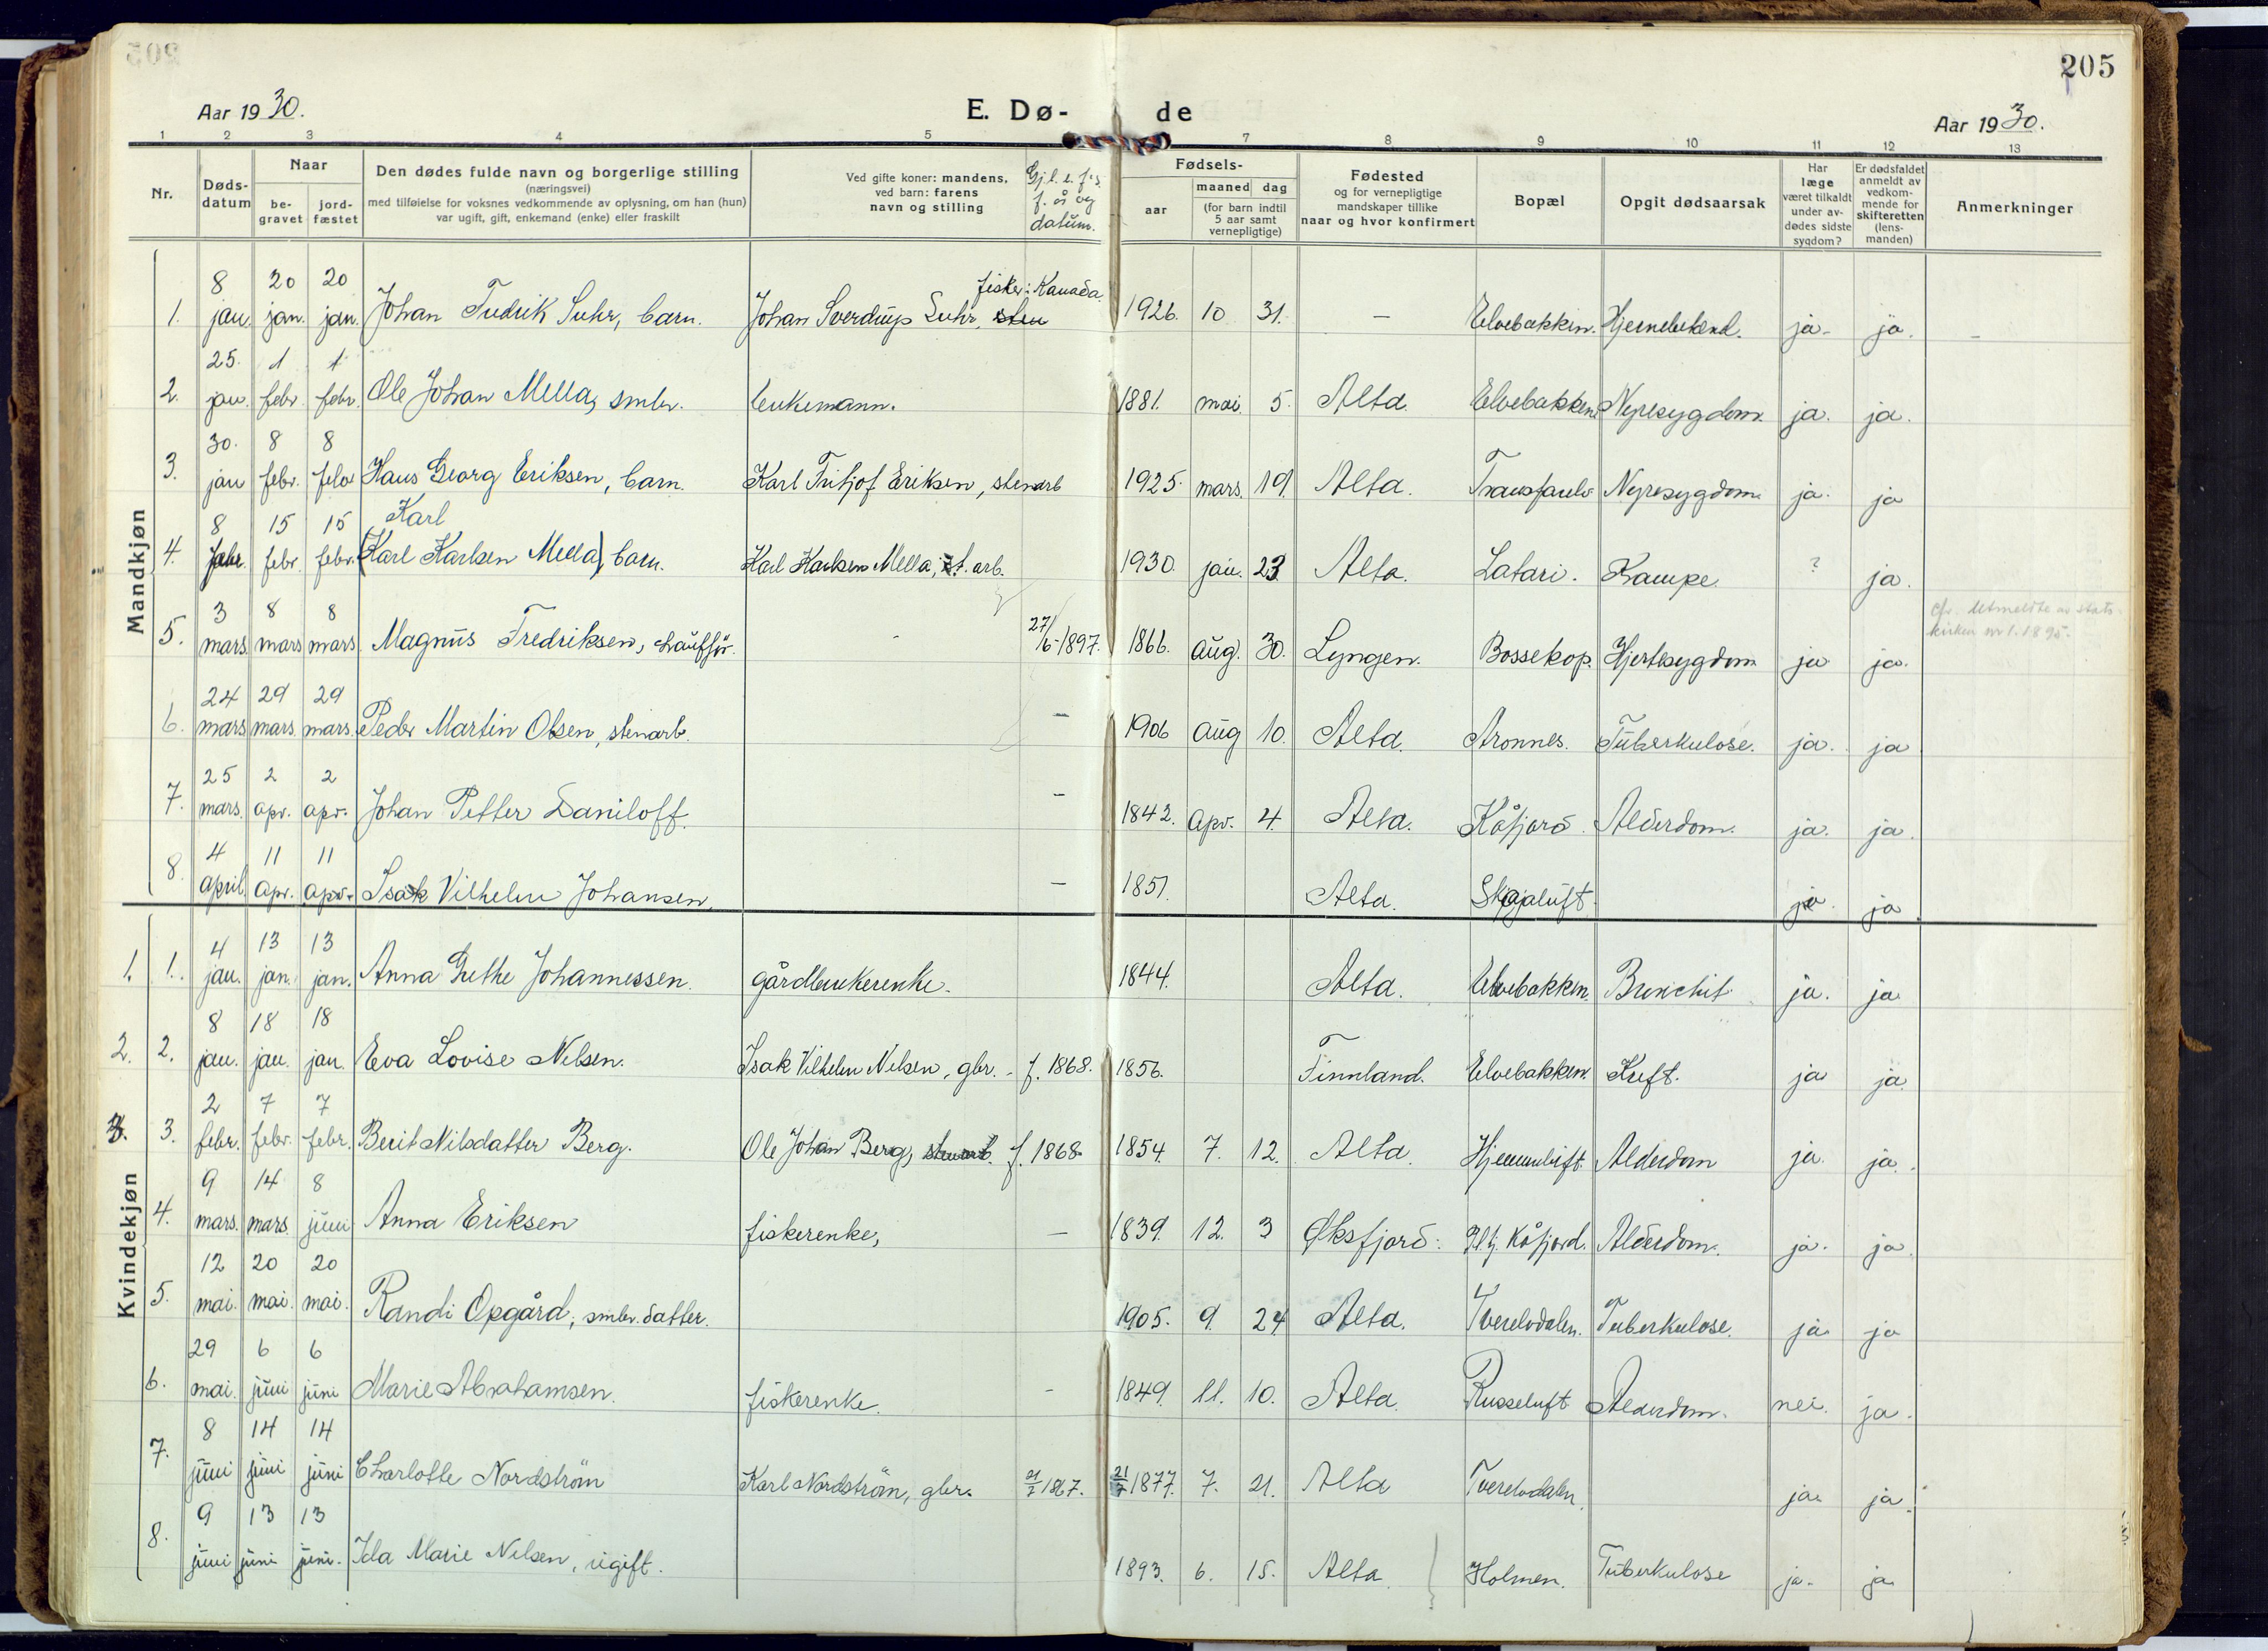 205
Aar 1930.
E. Dø- de
Aar 1930.
1 2 3 4 5 7 8 9 10 11 12 13
Nr.
Døds-datum
Naar
be-gravet
jord-fæstet
Den dødes fulde navn og borgerlige stilling
(næringsvei)
med tilføielse for voksnes vedkommende av oplysning, om han (hun)
var ugift, gift, enkemand (enke) eller fraskilt
Ved gifte koner: mandens,
ved barn: farens
navn og stilling
f. år og
datum.
Fødsels-
aar
maaned dag
(for barn indtil
5 aar samt
vernepligtige)
Fødested
og for vernepligtige
mandskaper tillike
naar og hvor konfirmert
Bopæl
Opgit dødsaarsak
Har
læge
været tilkaldt
under av-
dødes sidste
sygdom?
Er dødsfaldet
anmeldt av
vedkom-
mende for
skifteretten
(lens-
manden)
Anmerkninger
Mandkjøn
8 20 20 fisker: Kanada.
1. jan. jan. jan. Johan Fredrik Suhr, barn. Johan Sverdrup Suhr, 1926. 10 31. — Elvebakken. ja. ja.
25. 1 1
2. jan. febr. febr. Ole Johan Mella, smbr. Enkemann. 1881. mai. 5. Alta. Elvebakken Nyresygdom. ja. ja.
30. 8 8
3. jan febr. febr Hans Georg Eriksen, barn. Karl Fritjof Eriksen, stenarb 1925. mars. 19. Alta. Transfarelv Nyresygdom ja. ja
8 15 15 Karl
4. febr. febr. febr. (Karl Karlsen Mella) barn. Karl Karlsen Mella, st. arb. 1930. jan. 23. Alta. Latari. Krampe. ? ja.
cfr. Utmeldte av stats-
kirken nr 1. 1895.
3 8 8 27/
5. mars. mars mars. Magnus Fredriksen, chauffør. - 6-1897. 1866. aug. 30. Lyngen. Bossekop. Hjertesygdom ja ja.
24 29 29
6. mars mars. mars. Peder Martin Olsen, stenarb. — 1906 aug 10. Alta. Aronnes. Tuberkulose. ja. ja
25 2 2
7. mars. apr. apr. Johan Petter Daniloff. - 1842. apr. 4. Alta. Kåfjord. Alderdom. ja. ja.
4 11 11
8. april. apr. apr. Isak Vilhelm Johansen, — 1851. Alta. Skajaluft. ja. ja.
Kvindekjøn
4 13 13
1. 1. jan. jan. jan. Anna Grethe Johannessen. gårdbrukerenke. 1844. Alta. Elvebakken. ja. ja.
8 18 18
2. 2. jan. jan. jan. Eva Lovise Nilsen. Isak Vilhelm Nilsen, gbr. - f. 1868. 1856. Finnland. Elvebakken Kreft. ja ja.
2 7 7
3. 3. febr. febr. febr. Berit Nilsdatter Berg. Ole Johan Berg, stenarb. f. 1868. 1854. 7. 12. Alta. Hjemmeluft. Alderdom ja. ja.
9 14 8
4. mars. mars. juni Anna Eriksen fiskerenke, — 1839. 12. 3 Øksfjord. Kåfjord. Alderdom. ja. ja.
12 20 20
5. mai. mai. mai. Randi Opgård, smbr. datter. 1905. 9. 24 Alta. Tverelvdalen. Tuberkulose. ja. ja
29 6 6
6. mai. juni juni Marie Abrahamsen. fiskerenke. - 1849. 11. 10. Alta. Russeluft Alderdom. nei. ja.
8 14 14
7. juni juni juni Charlotte Nordström Karl Nordström, gbr. 21/7 1867. 21/7 1877. 7. 21. Alta Tverelvdalen. ja. ja.
9 13 13
8. juni juni juni. Ida Marie Nilsen, ugift. 1893. 6. 15. Alta. Holmen. Tuberkulose ja. ja